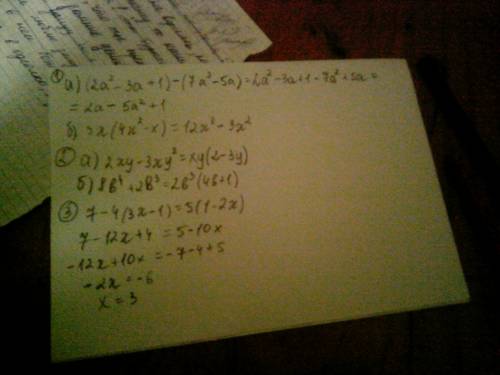 ① а) (2a² - 3a + 1) - (7a² - 5a) = 2a² - 3a + 1 - 7a² + 5a =
= 2a - 5a² + 1
б) 3x(4x² - x) = 12x³ - 3x²
② а) 2xy - 3xy² = xy(2 - 3y)
б) 8b⁴ + 2b³ = 2b³(4b + 1)
③ 7 - 4(3x - 1) = 5(1 - 2x)
7 - 12x + 4 = 5 - 10x
-12x + 10x = -7 - 4 + 5
-2x = -6
x = 3